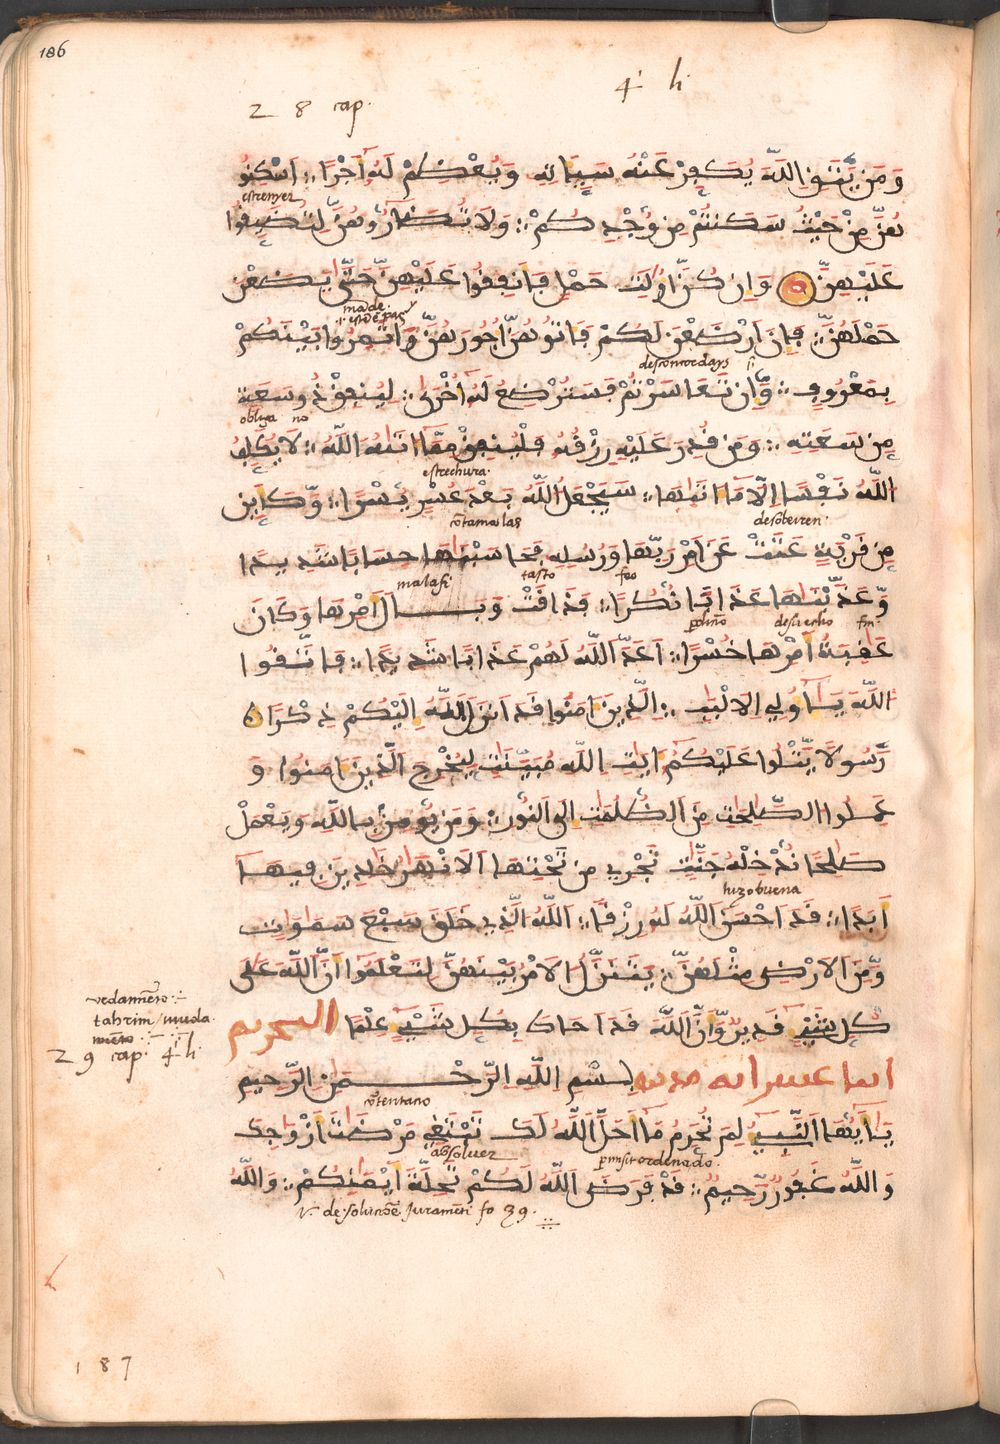 186
28 cap. 4 h
وَمَن يَّتَّقِ اِللَّهَ يُكَفِّرْ عَنْهُ سَيِّـَٔاتِهِ وَيُعْظِمْ لَهُ أَجْرًا ؞ اَسْكِنُو
estrenyer
هُنَّ مِنْ حَيْثُ سَكَنتُم مِّن وُجْدِكُمْ ؞ وَلَا تُضَآرُّوهُنَّ لِتُضَيِّقُوا
عَلَيْهِنَّ وَإِن كُنَّ أُوْلَٰتِ حَمْلٍ فَأَنفِقُوا عَلَيْهِنَّ حَتَّىٰ يَضَعْنَ
حَمْلَهُنَّ ؞ فَإِنْ أَرْضَعْنَ لَكُمْ فَـَٔاتُوهُنَّ أُجُورَهُنَّ وَأْتَمِرُوا بَيْنَكُم
descomcordays
بِمَعْرُوفٍ ؞ وَّإِن تَعَاسَرْتُمْ فَسَتُرْضِعُ لَهُ أُخْرَىٰ ؞ لِيُنفِقْ ذُو سَعَةٍ
obliga no
مِّن سَعَتِهِ ؞ وَمَن قُدِرَ عَلَيْهِ رِزْقُهُ فَلْيُنفِقْ مِمَّا ءَاتَىٰهُ اللَّهُ ؞ لَا يُكَلِّفُ
estrechura
اُللَّهُ نَفْسًا إِلَّا مَا ءَاتَىٰهَا ؞ سَيَجْعَلُ اُللَّهُ بَعْدَ عُسْرٍ يُسْرًا ؞ وَّكَأَيِّن
cõtamolas desobeiren
مِّن قَرْيَةٍ عَتَتْ عَنْ أَمْرِ رَبِّهَا وَرُسُلِهِ فَحَاسَبْنَٰهَا حِسَابًا شَدِيدًا
malafi tasto feo
وَّعَذَّبْنَٰهَا عَذَابًا نُّكُرًا ؞ فَذَاقَتْ وَبَالَ أَمْرِهَا وَكَانَ
fin
عَٰقِبَةُ أَمْرِهَا خُسْرًا ؞ أَعَدَّ اَللَّهُ لَهُمْ عَذَابًا شَدِيدًا ؞ فَاتَّقُوا
اُللَّهَ يَٰٓأُوْلِي اِلَالْبَٰبِ ؞ اِلَّذِينَ ءَامَنُوا قَدَ اَنزَلَ اَللَّهُ إِلَيْكُمْ ذِكْرًا
رَّسُولًا يَتْلُوا عَلَيْكُمْ ءَايَٰتِ اِللَّهِ مُبَيَّنَٰتٍ لِّيُخْرِجَ اَلَّذِينَ ءَامَنُوا وَ
عَمِلُوا اُلصَّٰلِحَٰتِ مِنَ اَلظُّلُمَٰتِ إِلَى اَلنُّورِ ؞ وَمَن يُؤْمِنۢ بِاللَّهِ وَيَعْمَلْ
صَٰلِحًا نُدْخِلْهُ جَنَّٰتٍ تَجْرِي مِن تَحْتِهَا اَلَانْهَٰرُ خَٰلِدِينَ فِيهَا
hizo buena
أَبَدًا ؞ قَدَ اَحْسَنَ اَللَّهُ لَهُ رِزْقًا ؞ اَللَّهُ اُلَّذِي خَلَقَ سَبْعَ سَمَٰوَٰتٍ
وَّمِنَ اَلَارْضِ مِثْلَهُنَّ ؞ يَتَنَزَّلُ اُلَامْرُ بَيْنَهُنَّ لِتَعْلَمُوا أَنَّ اَللَّهَ عَلَىٰ
كُلِّ شَيْءٍ قَدِيرٌ وَّأَنَّ اَللَّهَ قَدَ اَحَاطَ بِكُلِّ شَيْءٍ عِلْمًا التحريم
tahrim
29 cap. 4 h.
اثنا عشر اية مدنية بِسْمِ اِللَّهِ اِلرَّحْمَٰنِ اِلرَّحِيمِ
cõtentano
يَٰٓأَيُّهَا اَلنَّبِيءُ لِمَ تُحَرِّمُ مَا أَحَلَّ اَللَّهُ لَكَ تَبْتَغِي مَرْضَاتَ أَزْوَٰجِكَ
absoluer ordenado
وَاللَّهُ غَفُورٌ رَّحِيمٌ ؞ قَدْ فَرَضَ اَللَّهُ لَكُمْ تَحِلَّةَ أَيْمَٰنِكُمْ ؞ وَاللَّهُ
v. de solucõe iuramẽti fo 39.
187